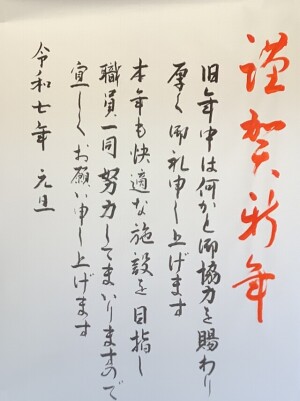 謹賀新年
旧年中は何かと御協力を賜わり
厚く御礼申し上げます
本年も快適な施設を目指し
職員一同努力してまいりますので
宜しくお願い申し上げます
令和七年 元旦